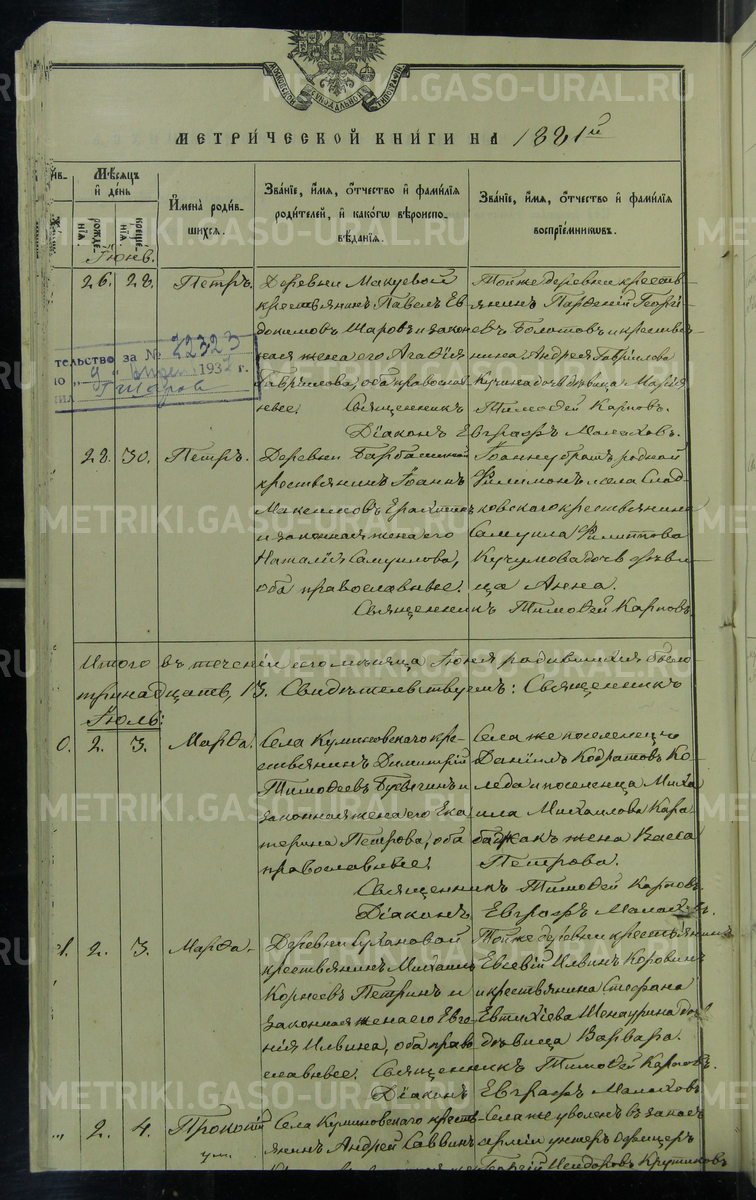 МЕТРИ́ЧЕСКОЙ КНИ́ГИ НА 1881й
Мѣсяцъ и день
рождені́я креще́нія
Имена̀ роди́вшихся.
Зва́ніе, и́мя, о́тчество и фами́лія родителей, и како́гѡ вѣроисповѣданія.
Зва́ніе, и́мя, о́тчество и фами́лія воспріе́мниковъ.
Іюнь.
26. 28. Петръ.
Деревни Макуевой
крестьянинъ Павелъ Ев
докимовъ Шаровъ и закон
ная жена его Агафія
Гаврілова, оба православ
ные.
Тойже деревни кресть
янинъ Парѳеній Георгі
евъ Болотовъ и кресть
нина Андрея Гаврілова
Кучина дочь дѣвица Марія
Священникъ Тимоѳей Карповъ.
Діаконъ Евграфъ Малаховъ.
тельство за № 22323
1932 г.
28. 30. Петръ.
Деревни
крестьянинъ Іоаннъ
Максимовъ
и законная жена его
Наталія Самуилова,
оба православные.
Іоанну братъ родной
Филимонъ и села Слад
ковскаго крестьянина
Самуила Филиппова
Кучумова дочь дѣви
ца Анна.
Священникъ Тимоѳей Карповъ
Итого въ теченіи сего мѣсяца Іюня родившихся было
тринадцать, 13. Свидѣтельствуемъ: Священникъ
Іюль:
0. 2. 3. Марѳа.
Села Куминовскаго кре
стьянинъ Димитрій
Тимоѳеевъ и
законная жена его Ека
терина Петрова, оба
православные.
Села же поселенецъ
Даніилъ Кодратовъ Ко
леда и поселенца Миха
ила Михаилова Кара
баджакъ жена Васса
Петрова.
Священникъ Тимоѳей Карповъ
Діаконъ Евграфъ Малаховъ.
1. 2. 3. Марѳа.
Деревни Сухановой
крестьянинъ Михаилъ
Корнеевъ Петринъ и
законная жена его Евге
нія Ильина, оба право
славные.
Тойже деревни крестьянинъ
Евсевій Ильинъ Коровинъ
и крестьянина Стефана
Евтихіева Шенаурина доч
дѣвица Варвара.
Священникъ Тимоѳей Карповъ.
Діаконъ Евграфъ Малаховъ
2. 4. Прокопій
Села Куминовскаго кресть
янинъ Андрей Саввинъ
Села же уволенъ въ запас
арміи унтеръ офицеръ
Георгій Исидоровъ Крутиковъ
METRIKI.GASO-URAL.RU